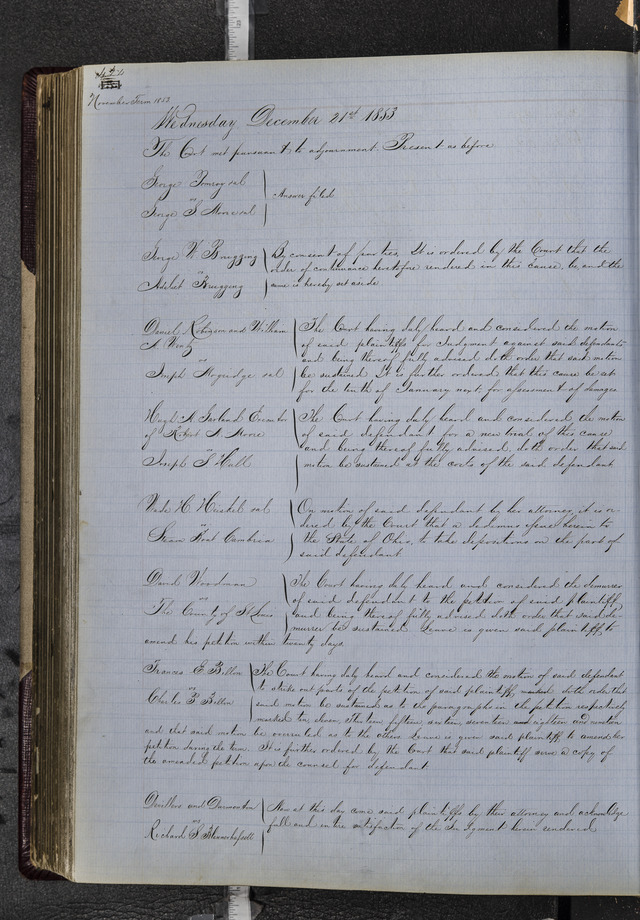 November Term 1853
Wednesday December 21st 1853
The Court met pursuant to adjournment Present as before
George
vs
George S
Answer filed
George W. Brugging
vs
Brugging
By consent of parties, It is ordered by the Court that the
order of continuance heretofore rendered in this cause be, and the
same is hereby set aside
Daniel Robinson and William
A.
vs
Joseph Mogridge et al
The Court having duly heard and considered the motion
of said plaintiffs for Judgment against said defendants
and being thereof fully advised doth order that said motion
be sustained. It is further ordered that this cause be set
for the tenth of January next for assessment of damages
Hugh A. Garland Executor
of Robert A. Moore
vs
Joseph S Hull
The Court having duly heard and considered the motion
of said defendant for a new trial of this cause
and being thereof fully advised, doth order that said
motion be sustained at the costs of the said defendant
H. et al
vs
Steam Boat Cambria
On motion of said defendant by her attorney it is or-
dered by the Court that a dedimus issue herein to
the State of Ohio, to take depositions on the part of
said defendant
David Woodman
vs
The County of St Louis
The Court having duly heard and considered the demurrer
of said defendant to the petition of said plaintiff,
and being thereof fully advised doth order that said de-
murrer be sustained. Leave is given said plaintiff, to
amend his petition within twenty days
Frances E. Billon
vs
Charles P Billon
The Court having duly heard and considered the motion of said defendant
to strike out parts of the petition of said plaintiff, doth order that
said motion be sustained as to the paragraphs in the petition respectively
marked ten, eleven, fifteen, sixteen, seventeen and eighteen and nineteen
and that said motion be overruled as to the others. Leave is given said plaintiff to amend her
petition during the term. It is further ordered by the Court that said plaintiff serve a copy of
the amended petition upon the counsel for defendant
and
vs
Richard S
Now at this day come said plaintiffs by their attorney and acknowledge
full and entire satisfaction of the Judgment herein rendered